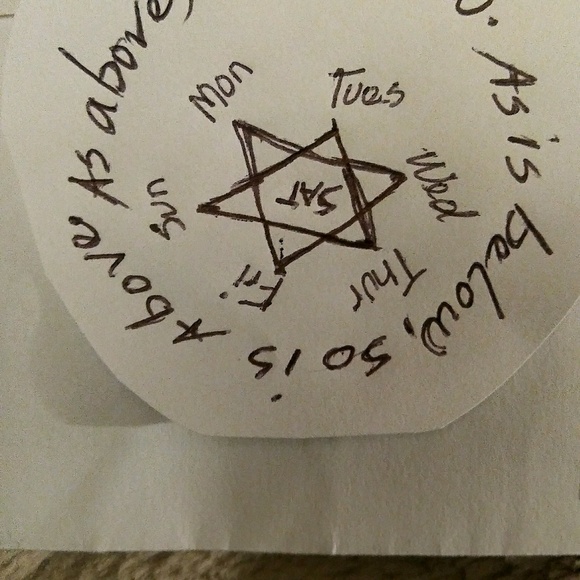 As above
. As is below, so is Above
Mon
Tues
Wed
Thur
Fri.
Sun
SAT